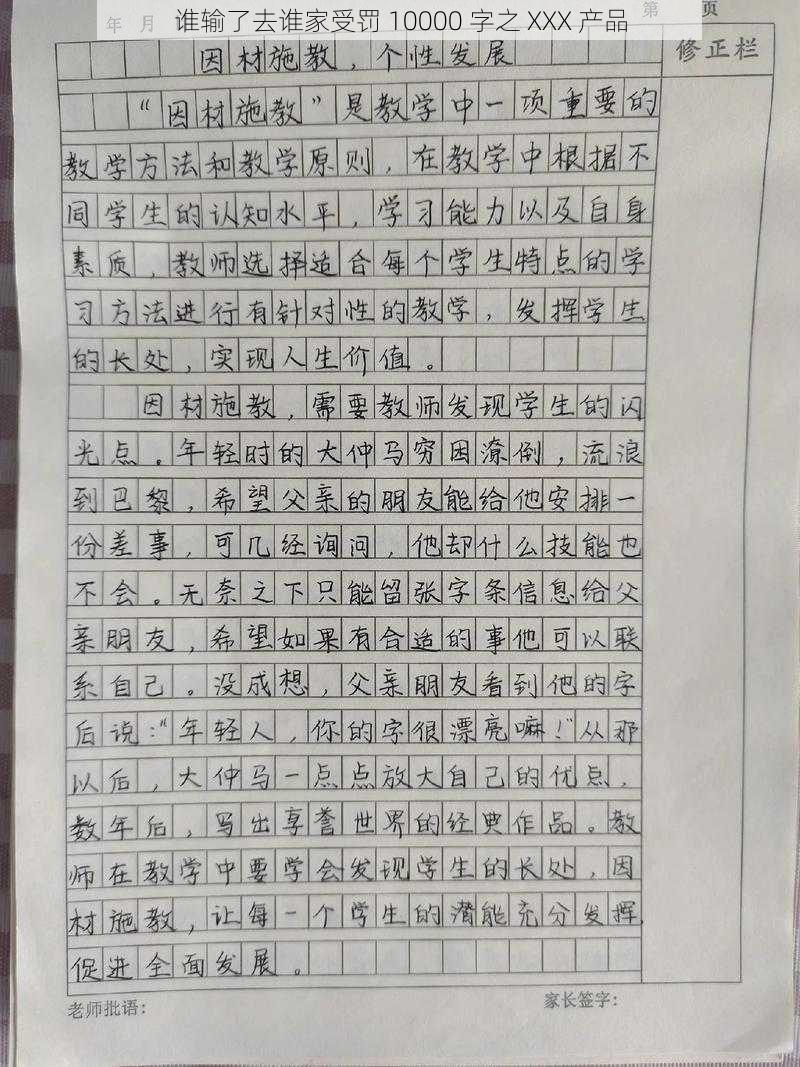 谁输了去谁家受罚 10000 字之 XXX 产品
年 月 第 页
因材施教，个性发展
修正栏
“因材施教”是教学中一项重要的
教学方法和教学原则，在教学中根据不
同学生的认知水平，学习能力以及自身
素质，教师选择适合每个学生特点的学
习方法进行有针对性的教学，发挥学生
的长处，实现人生价值。
因材施教，需要教师发现学生的闪
光点。年轻时的大仲马穷困潦倒，流浪
到巴黎，希望父亲的朋友能给他安排一
份差事，可几经询问，他却什么技能也
不会。无奈之下只能留张字条信息给父
亲朋友，希望如果有合适的事他可以联
系自己。没成想，父亲朋友看到他的字
后说：“年轻人，你的字很漂亮嘛！”从那
以后，大仲马一点点放大自己的优点，
数年后，写出享誉世界的经典作品。教
师在教学中要学会发现学生的长处，因
材施教，让每一个学生的潜能充分发挥，
促进全面发展。
老师批语： 家长签字：